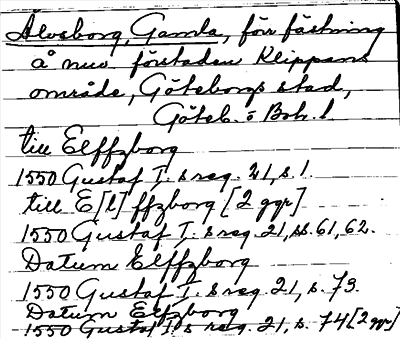 Älvsborg, Gamla, förr fästning
å nuv. förstaden Klippans
område, Göteborgs stad,
Göteb. o Boh. l
till Elffzborg
1550 Gustaf I.s reg. 21, s. 1.
till E[l]ffzborg [2 ggr]
1550 Gustaf I.s reg. 21, ss. 61, 62.
Datum Elffzborg
1550 Gustaf I.s reg. 21, s. 73.
Datum Elfzborg
1550 Gustaf I.s reg. 21, s. 74 [2 ggr]